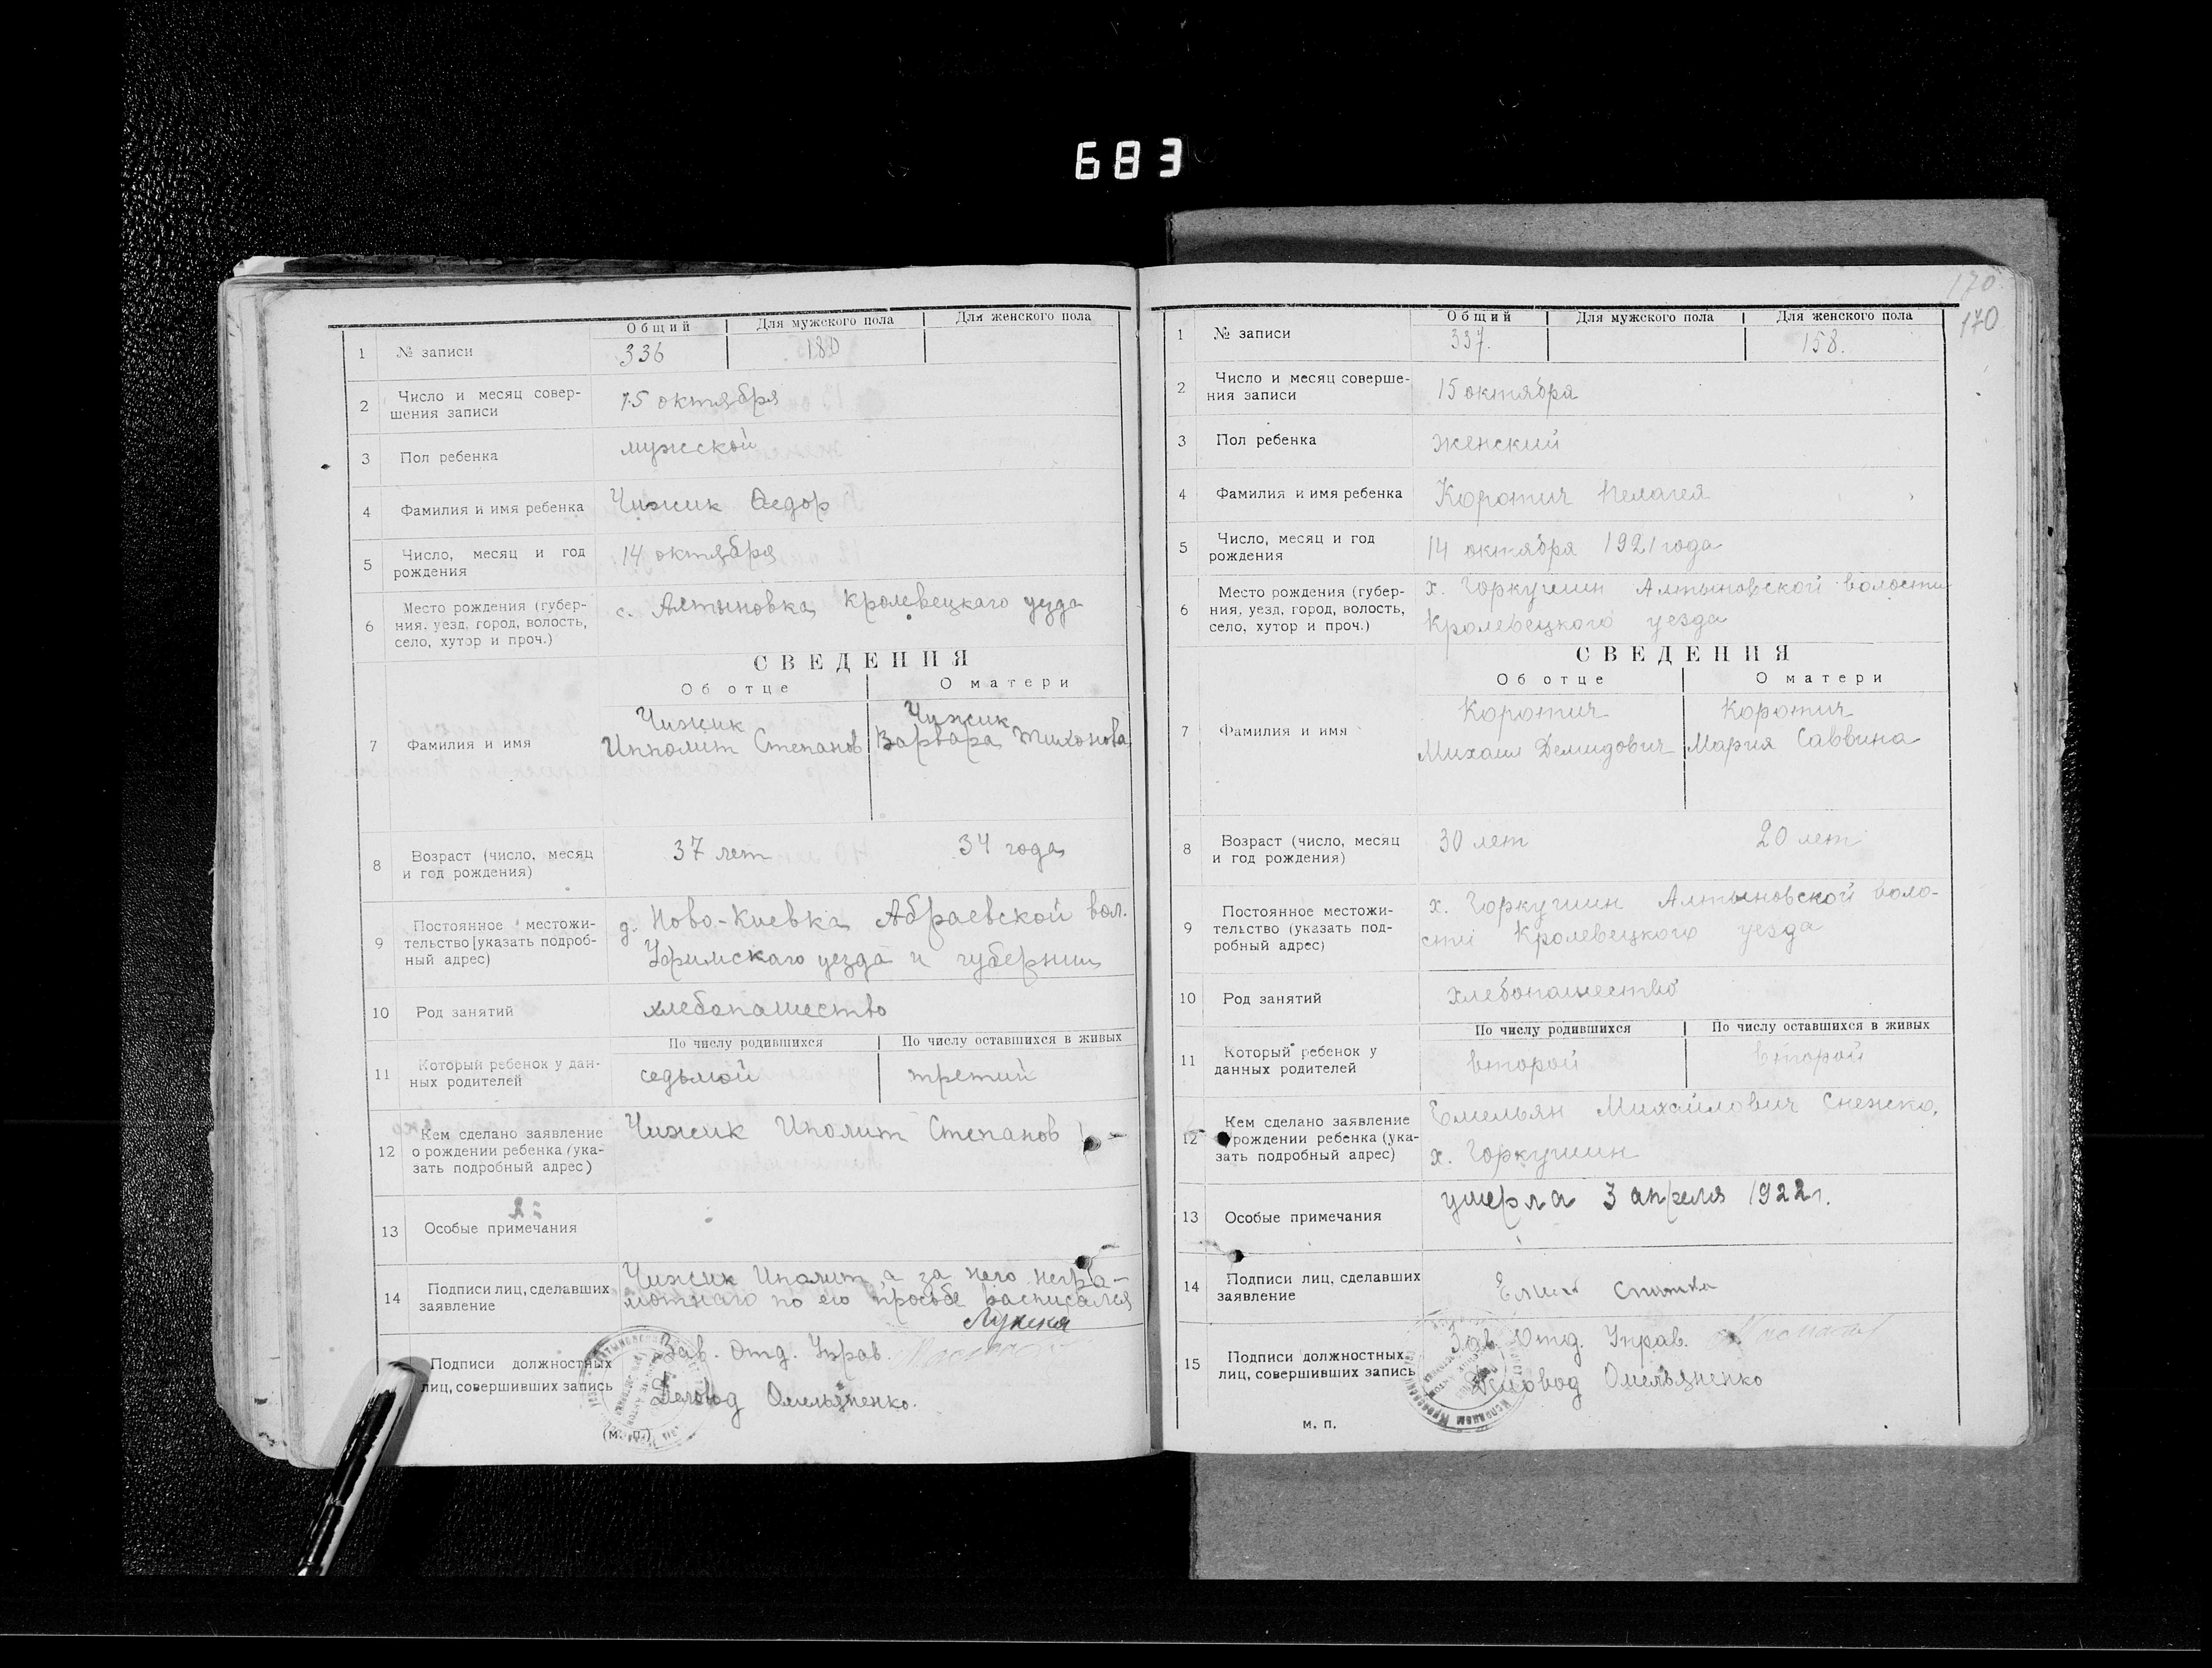 683
Общий Для мужского пола Для женского пола
1 № записи 336 180
2 Число и месяц совер-
шения записи
15 октября
3 Пол ребенка мужской
4 Фамилия и имя ребенка Чижик Федор
5 Число, месяц и год
рождения
14 октября
6 Место рождения (губер-
ния, уезд, город, волость,
село, хутор и проч.)
с. Алтыновка Кролевецкаго уезда
СВЕДЕНИЯ
Об отце О матери
7 Фамилия и имя
Чижик Чижик
Ипполит Степанов Варвара Тихонова
8 Возраст (число, месяц
и год рождения)
37 лет 34 года
9 Постоянное местожи-
тельство [указать подроб-
ный адрес)
д. Ново-Киевка Абраевской вол.
Уфимскаго уезда и губернии
10 Род занятий хлебопашество
По числу родившихся По числу оставшихся в живых
11 Который ребенок у дан-
ных родителей
седьмой третий
12 Кем сделано заявление
о рождении ребенка (ука-
зать подробный адрес)
Чижик Иполит Степанов
13 Особые примечания
14 Подписи лиц, сделавших
заявление
Чижик Иполит а за него негра-
мотнаго по его просьбе расписался
Подписи должностных
лиц, совершивших запись
Зав. Отд. Управ.
Деловод Омельяненко.
(м. п.)
170
170
Общий Для мужского пола Для женского пола
1 № записи 337. 158.
2 Число и месяц соверше-
ния записи
15 октября
3 Пол ребенка женский
4 Фамилия и имя ребенка Коротич Пелагея
5 Число, месяц и год
рождения
14 октября 1921 года
6 Место рождения (губер-
ния, уезд, город, волость,
село, хутор и проч.)
х. Горкушин Алтыновской волости
Кролевецкого уезда
СВЕДЕНИЯ
Об отце О матери
7 Фамилия и имя
Коротич Коротич
Михаил Демидович Мария Саввина
8 Возраст (число, месяц
и год рождения)
30 лет 20 лет
9 Постоянное местожи-
тельство (указать под-
робный адрес)
х. Горкушин Алтыновской воло-
сти Кролевецкого уезда
10 Род занятий хлебопашество
По числу родившихся По числу оставшихся в живых
11 Который ребенок у
данных родителей
второй второй
12 Кем сделано заявление
рождении ребенка (ука-
зать подробный адрес)
Емельян Михайлович
х. Горкушин
13 Особые примечания умерла 3 апреля 1922 г.
14 Подписи лиц, сделавших
заявление
15 Подписи должностных
лиц, совершивших запись
Зав. Отд. Управ.
Деловод Омельяненко
м. п.